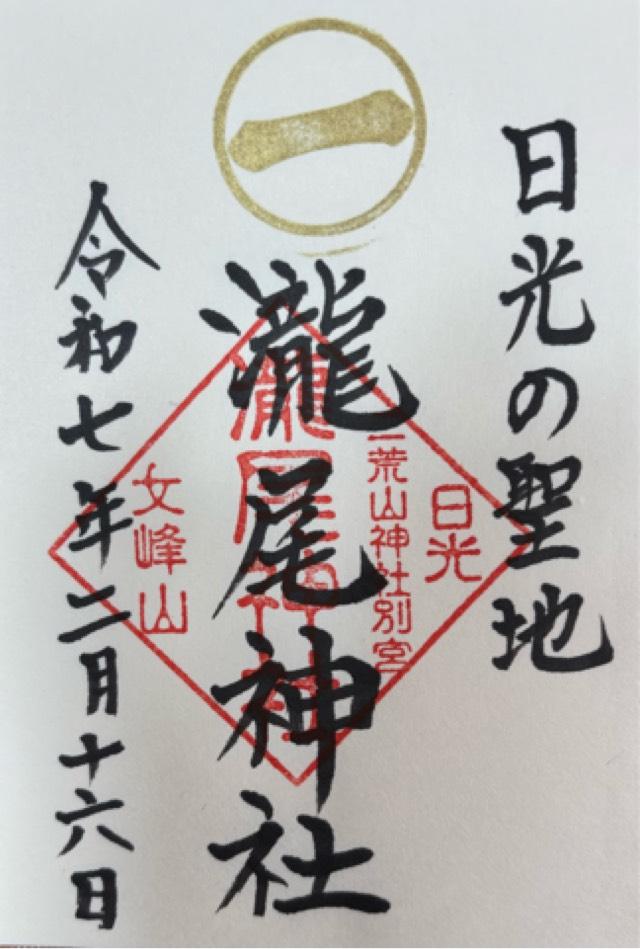 一
日光の聖地
瀧尾神社
令和七年二月十六日
日光
二荒山神社別宮
瀧尾神社
女峰山